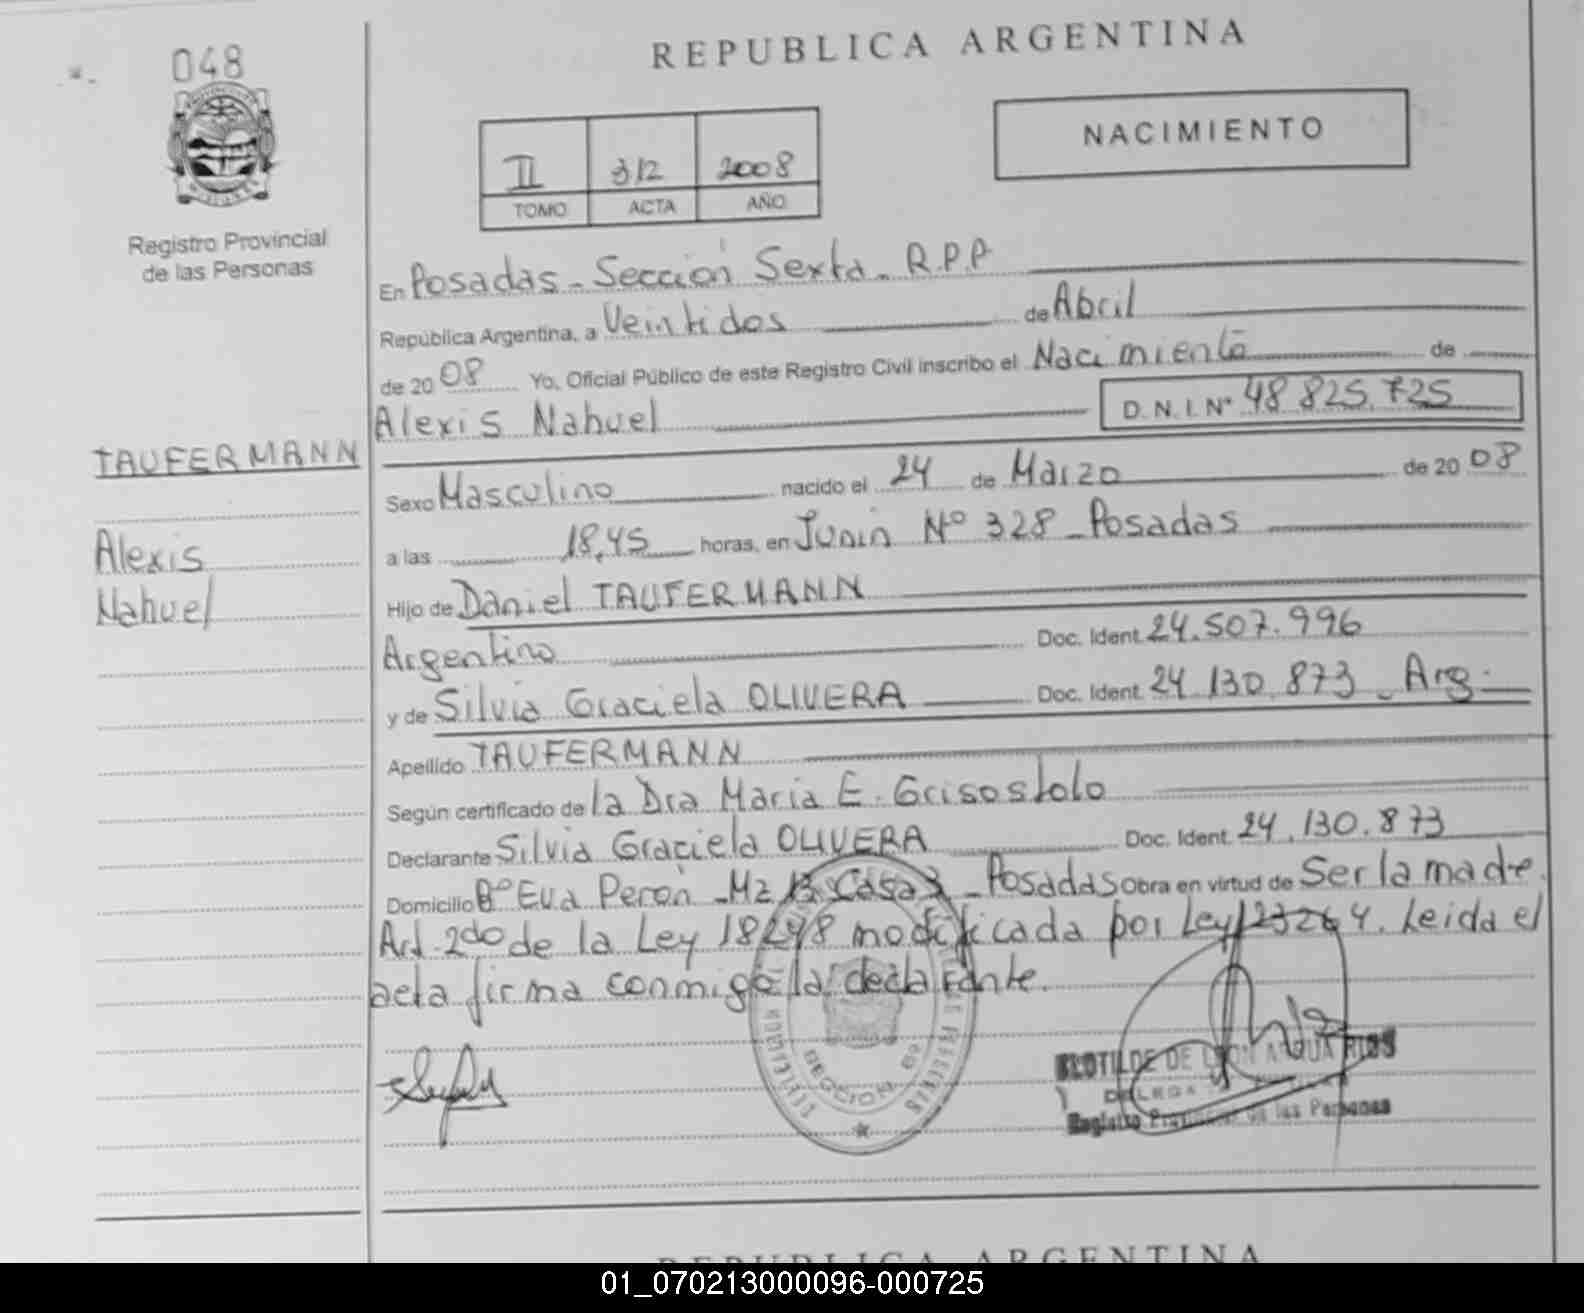 048
REPUBLICA ARGENTINA
NACIMIENTO
II 312 2008
TOMO ACTA AÑO
Registro Provincial
de las Personas
En Posadas - Sección Sexta - R.P.P
República Argentina, a Veintidos de Abril
de 20 08 Yo, Oficial Público de este Registro Civil inscribo el Nacimiento de
Alexis Nahuel D.N.I. Nº 48.825.725
TAUFERMANN
Alexis
Nahuel
Sexo Masculino nacido el 24 de Marzo de 20 08
a las 18,45 horas, en Junín Nº 328 - Posadas
Hijo de Daniel TAUFERMANN
Argentino Doc. Ident. 24.507.996
y de Silvia Graciela OLIVERA Doc. Ident. 24.130.873 - Arg.
Apellido TAUFERMANN
Según certificado de la Dra Maria E. Grisostolo
Declarante Silvia Graciela OLIVERA Doc. Ident. 24.130.873
Domicilio Bº Eva Perón - Mz 13 Casa 3 - Posadas Obra en virtud de Ser la madre.
Art. 2do de la Ley 18248 modificada por Ley 23264. Leida el
acta firma conmigo la declarante.
SECCION 6ª
CLOTILDE DE
Registro Provincial de las Personas
REPUBLICA ARGENTINA
01_070213000096-000725